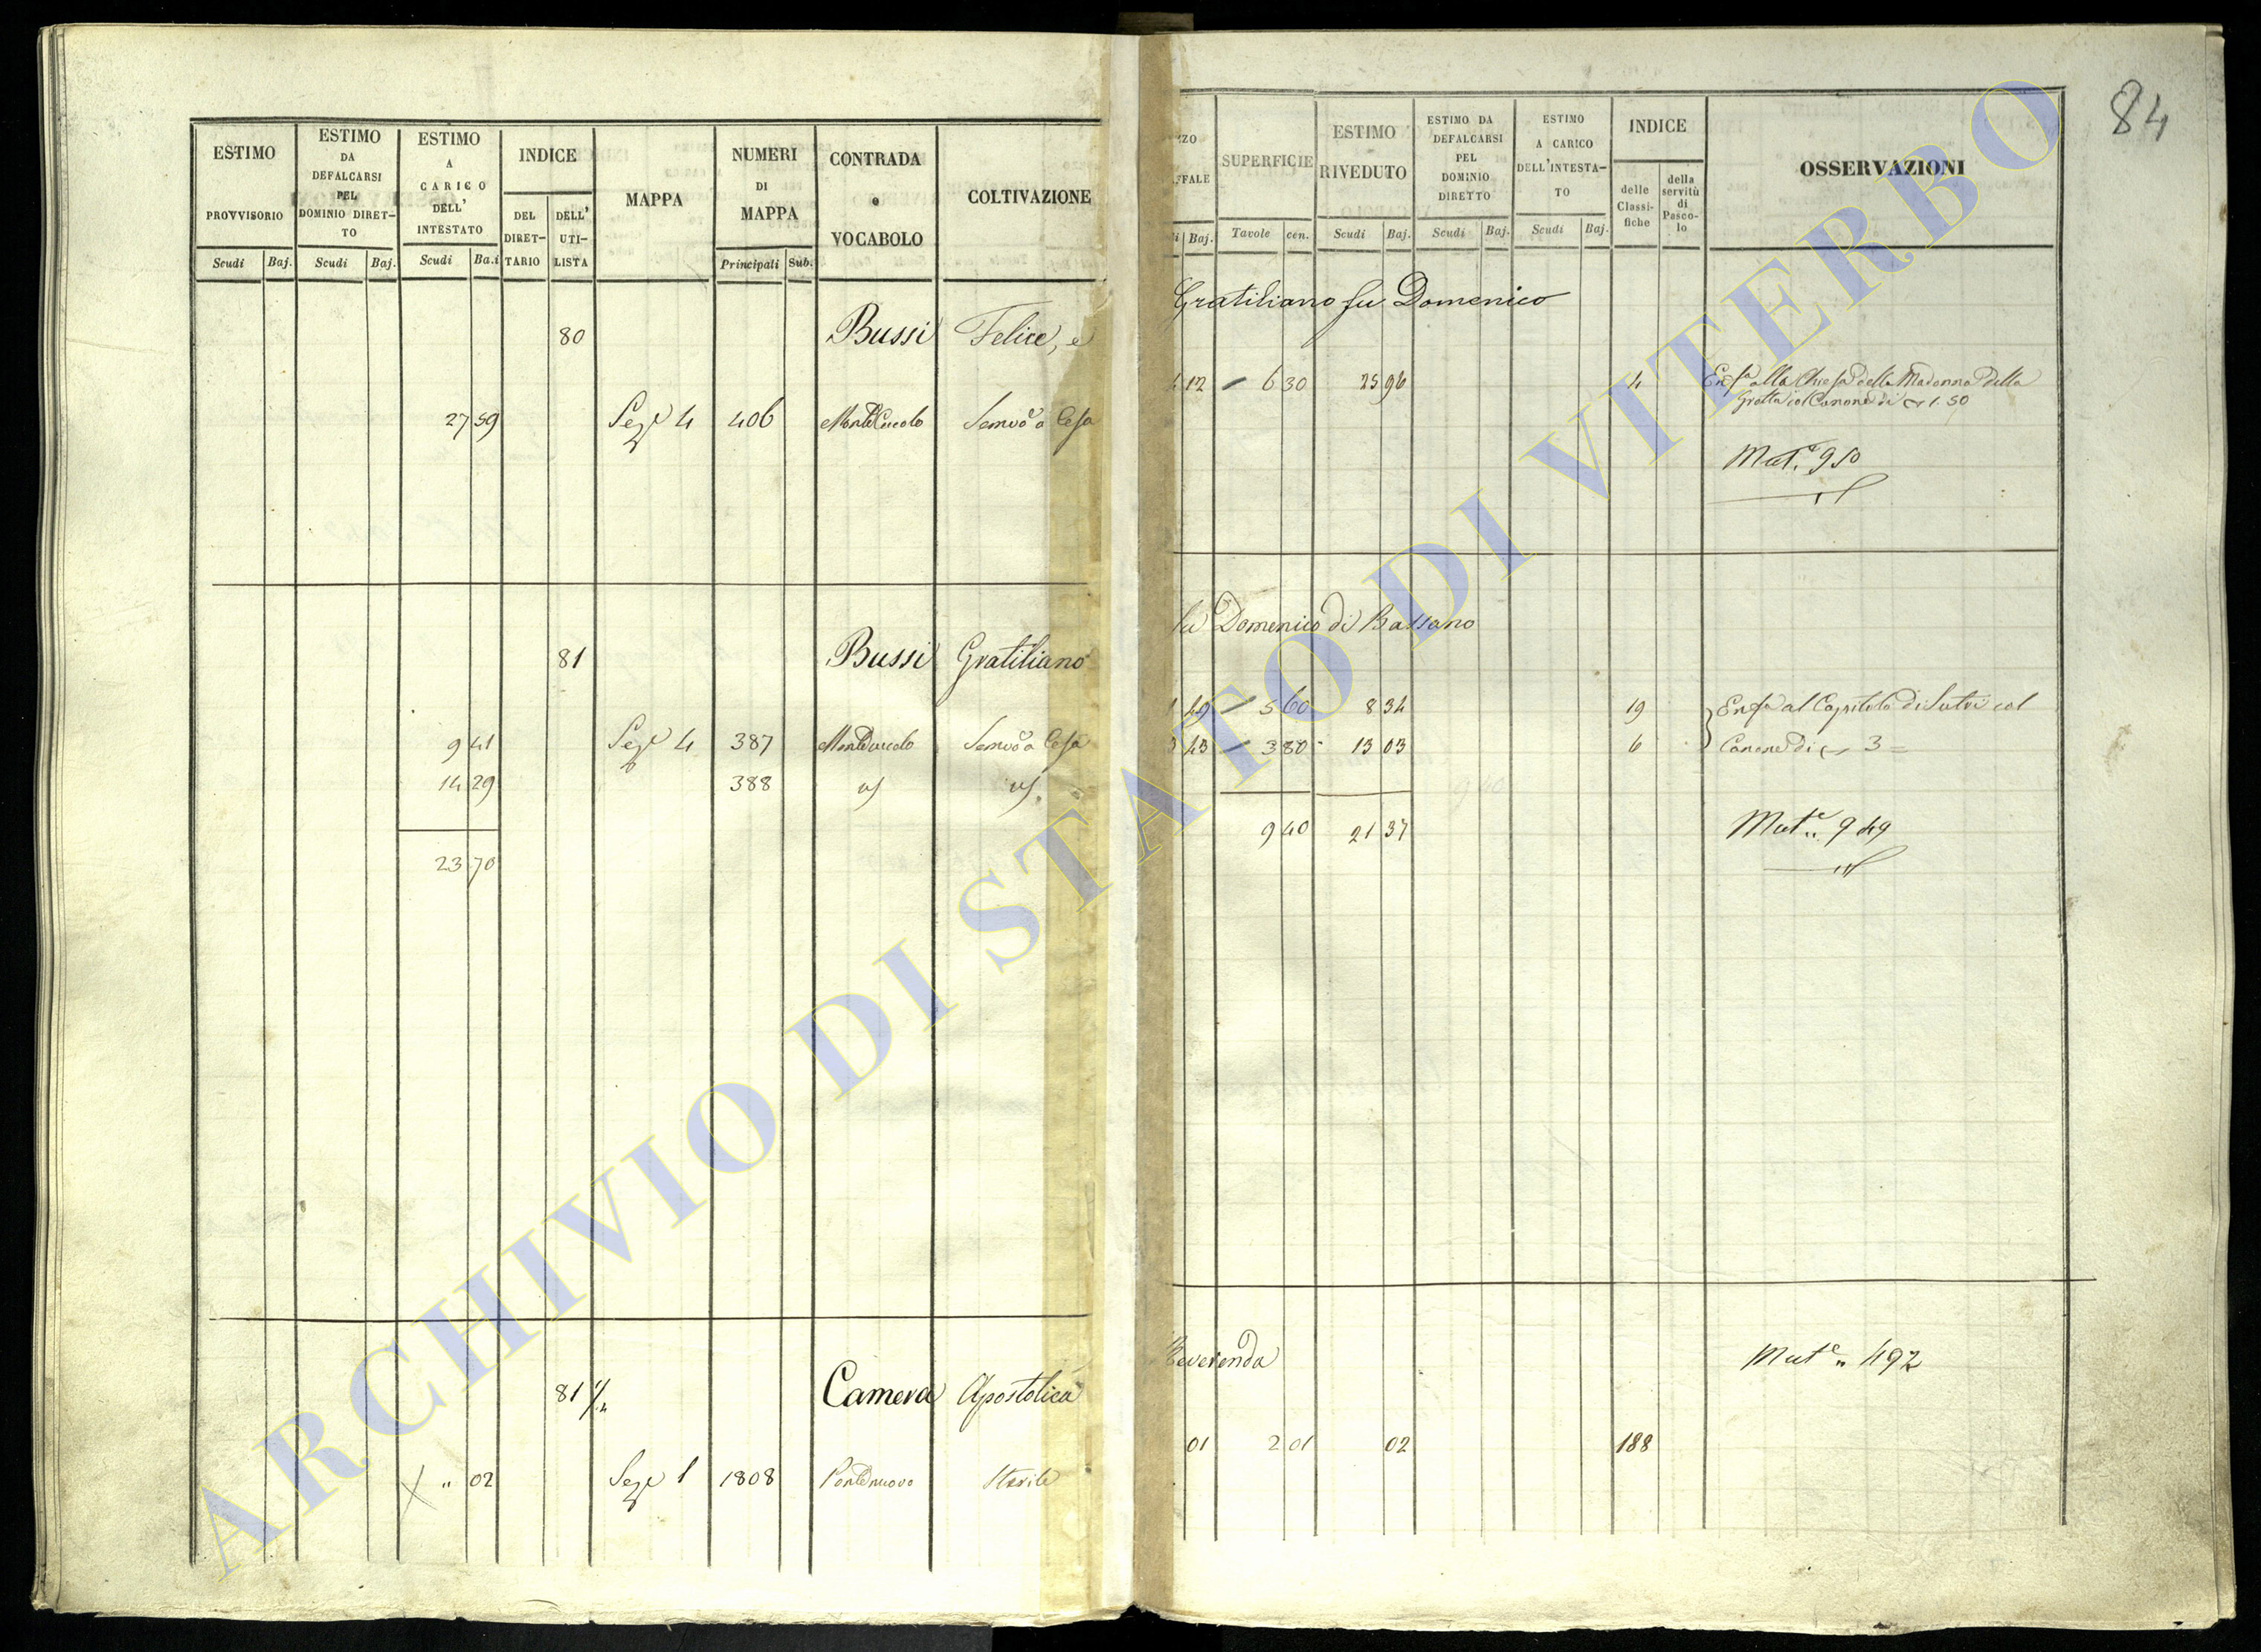 84
ESTIMO PROVVISORIO
ESTIMO DA DEFALCARSI PEL DOMINIO DIRET-TO
ESTIMO A CARICO DELL' INTESTATO
INDICE
DEL DIRET-TARIO
DELL' UTI-LISTA
MAPPA
NUMERI DI MAPPA
CONTRADA o VOCABOLO
COLTIVAZIONE
Scudi Baj. Scudi Baj. Scudi Ba.i Principali Sub.
ZZO FFALE
SUPERFICIE
ESTIMO RIVEDUTO
ESTIMO DA DEFALCARSI PEL DOMINIO DIRETTO
ESTIMO A CARICO DELL'INTESTA-TO
INDICE
delle Classi-fiche
della servitù di Pasco-lo
OSSERVAZIONI
di Baj. Tavole cen. Scudi Baj. Scudi Baj. Scudi Baj.
80 Bussi Felice, e Gratiliano fu Domenico
27 59 Sez.e 4 406 Seminō a Cesa 12 6 30 25 96 4 Enf.a alla Chiesa della Madonna della
Grotta col Canone di 1.50
Mut.e 950
81 Bussi Gratiliano fu Domenico di Bassano
9 41 Sez.e 4 387 Seminō a Cesa 49 5 60 8 34 19 Enf.a al Capitolo di Sutri col
14 29 388 43 3 80 13 03 6 Canone di 3 =
23 70 9 40 21 37
Mut.e 949
81 1/2 Camera Apostolica Reverenda Mut.e 492
" 02 Sez.e 1 1808 Pontenuovo Sterile 01 2 01 02 188
ARCHIVIO DI STATO DI VITERBO